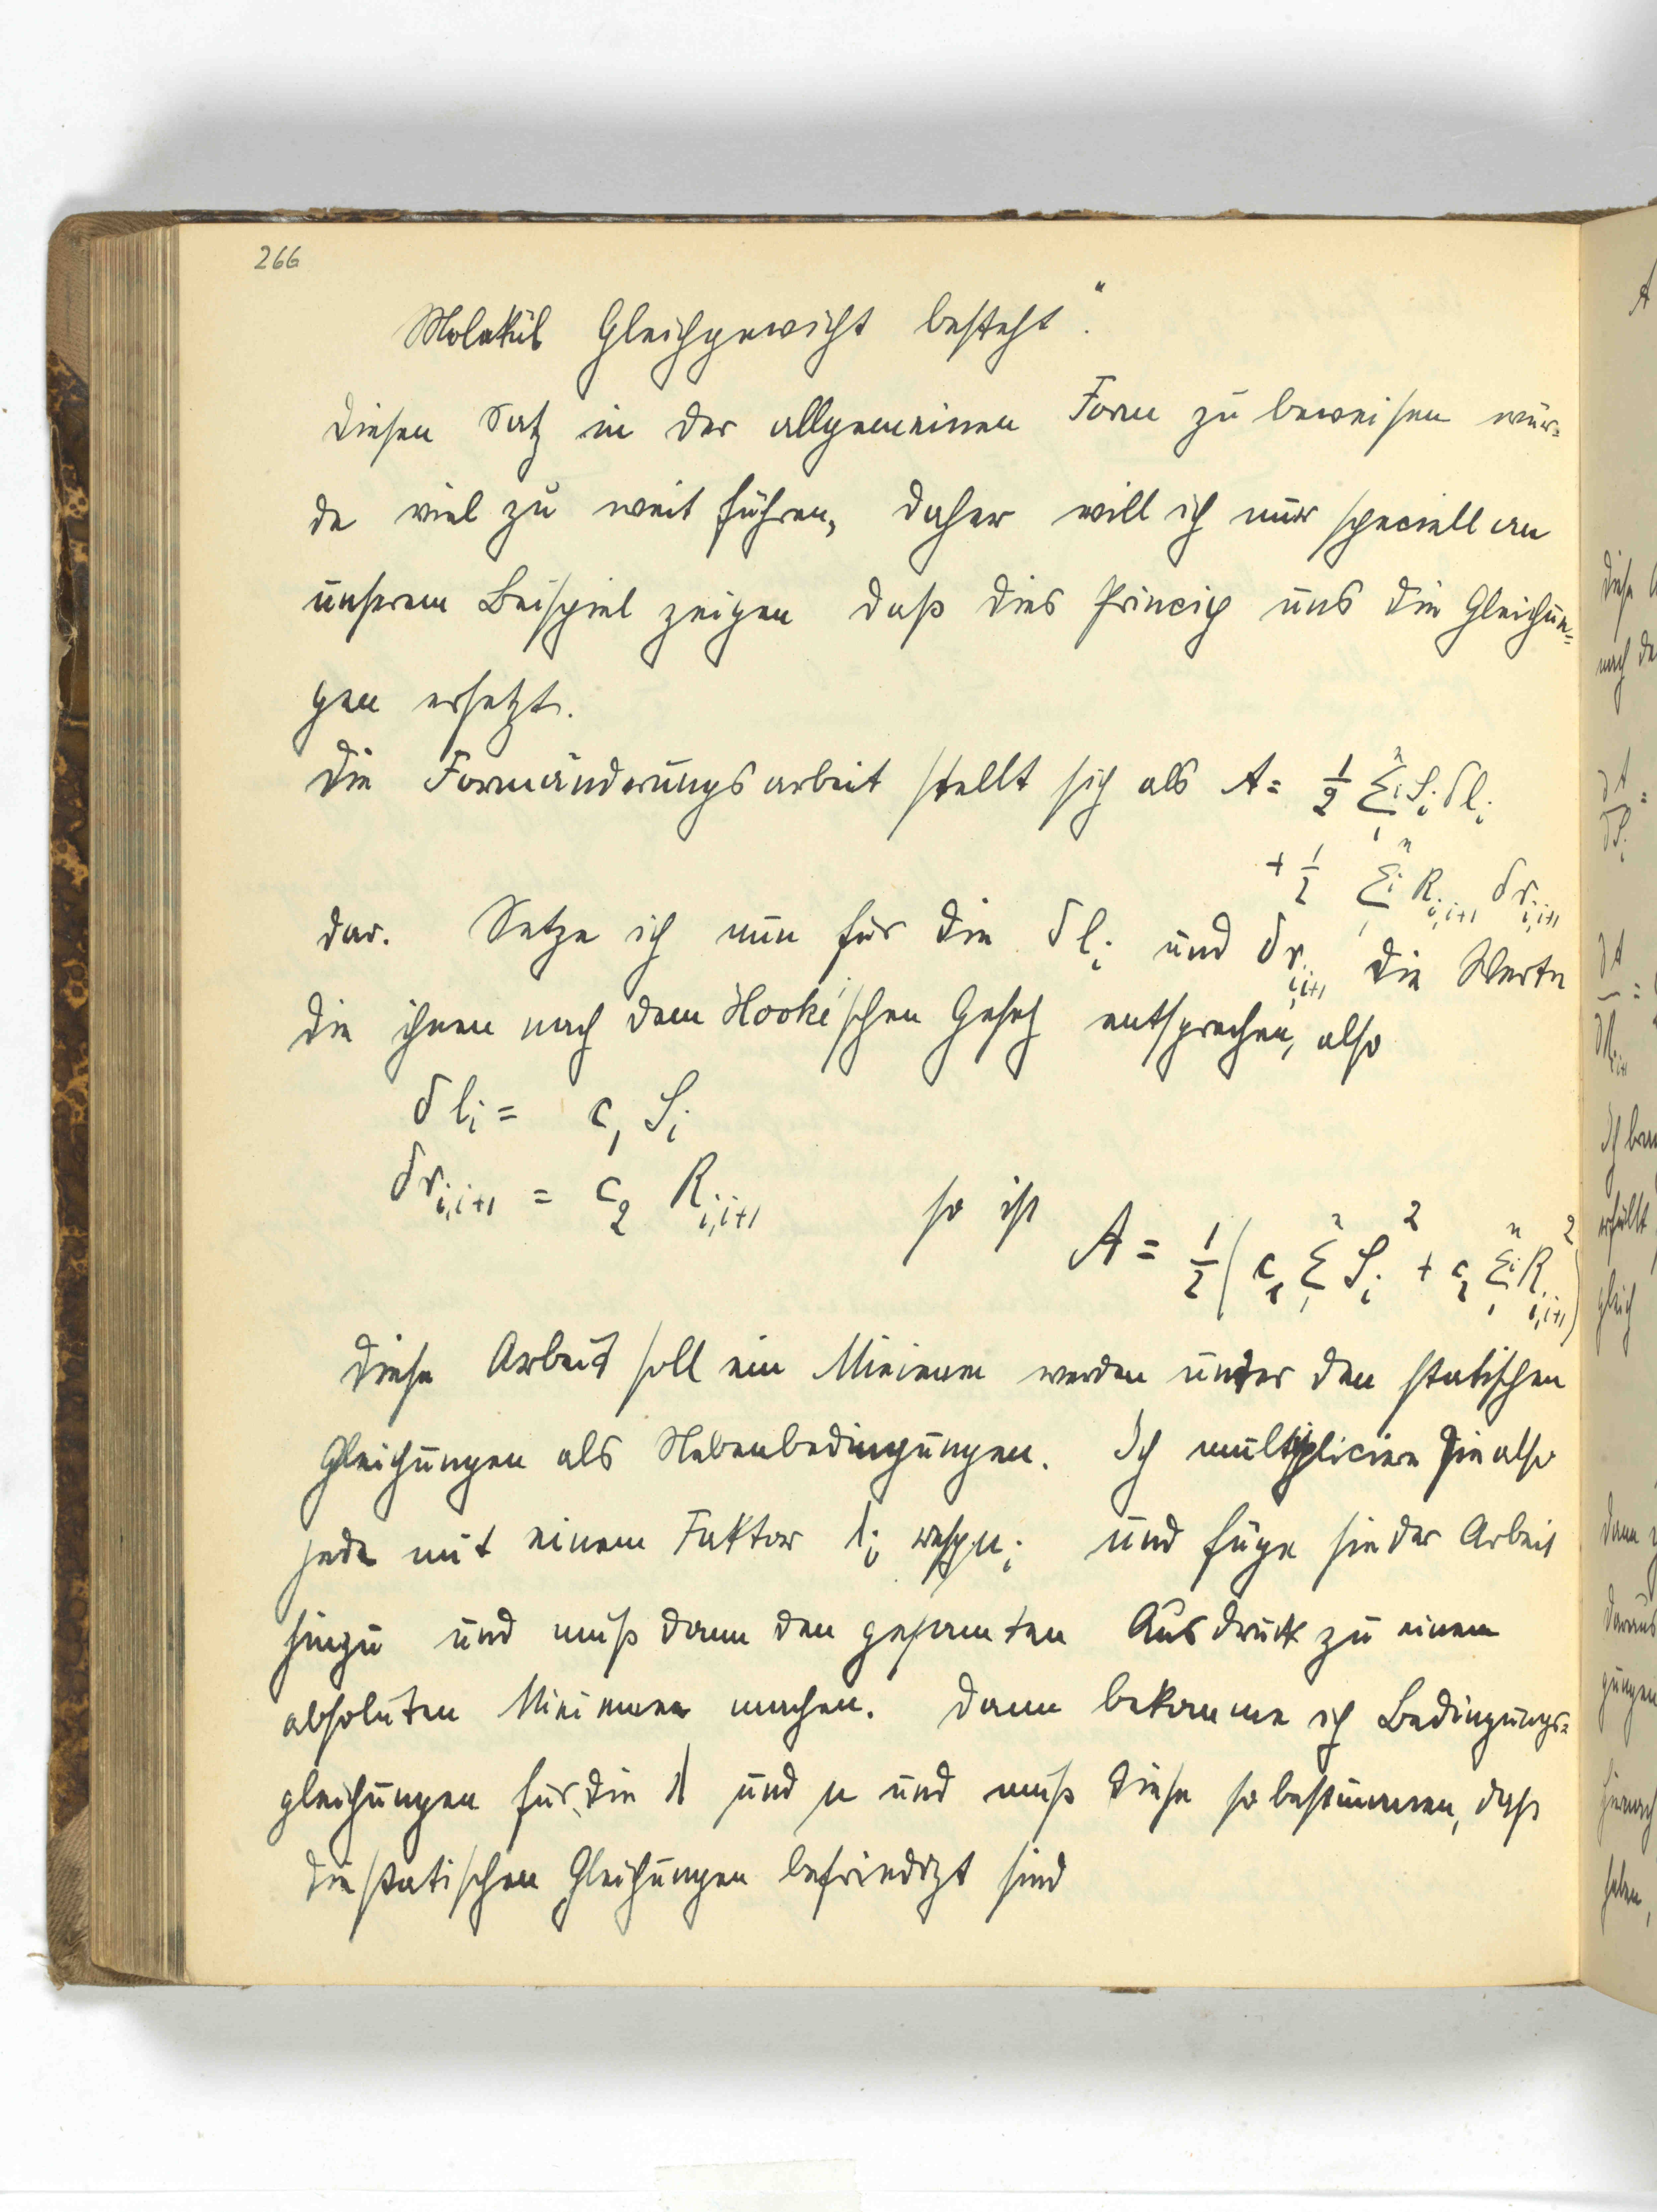 266
Molekül Gleichgewicht besteht".
Diesen Satz in der allgemeinen Form zu beweisen wür-
de viel zu weit führen, daher will ich nur speciell an
unserem Beispiel zeigen daß dies Princip uns die Gleichun-
gen ersetzt.
Die Formänderungsarbeit stellt sich als A = 1/2 Σ_1^n i S_i δl_i
+ 1/2 Σ_1^n i R_{i,i+1} δr_{i,i+1}
dar. Setze ich nun für die δl_i und δr_{i,i+1} die Werte
die ihnen nach dem Hooke'schen Gesetz entsprechen, also
δl_i = c_1 S_i
δr_{i,i+1} = c_2 R_{i,i+1} so ist A = 1/2 (c_1 Σ_1^n S_i^2 + c_2 Σ_1^n i R_{i,i+1}^2)
Diese Arbeit soll ein Minimum werden unter den statischen
Gleichungen als Nebenbedingungen. Ich multipliciere sie also
jede mit einem Faktor λ_i resp. μ_i und füge sie der Arbeit
hinzu und muß dann den gesamten Ausdruck zu einem
absoluten Minimum machen. Dann bekomme ich Bedingungs-
gleichungen für die λ und μ und muß diese so bestimmen, daß
die statischen Gleichungen befriedigt sind